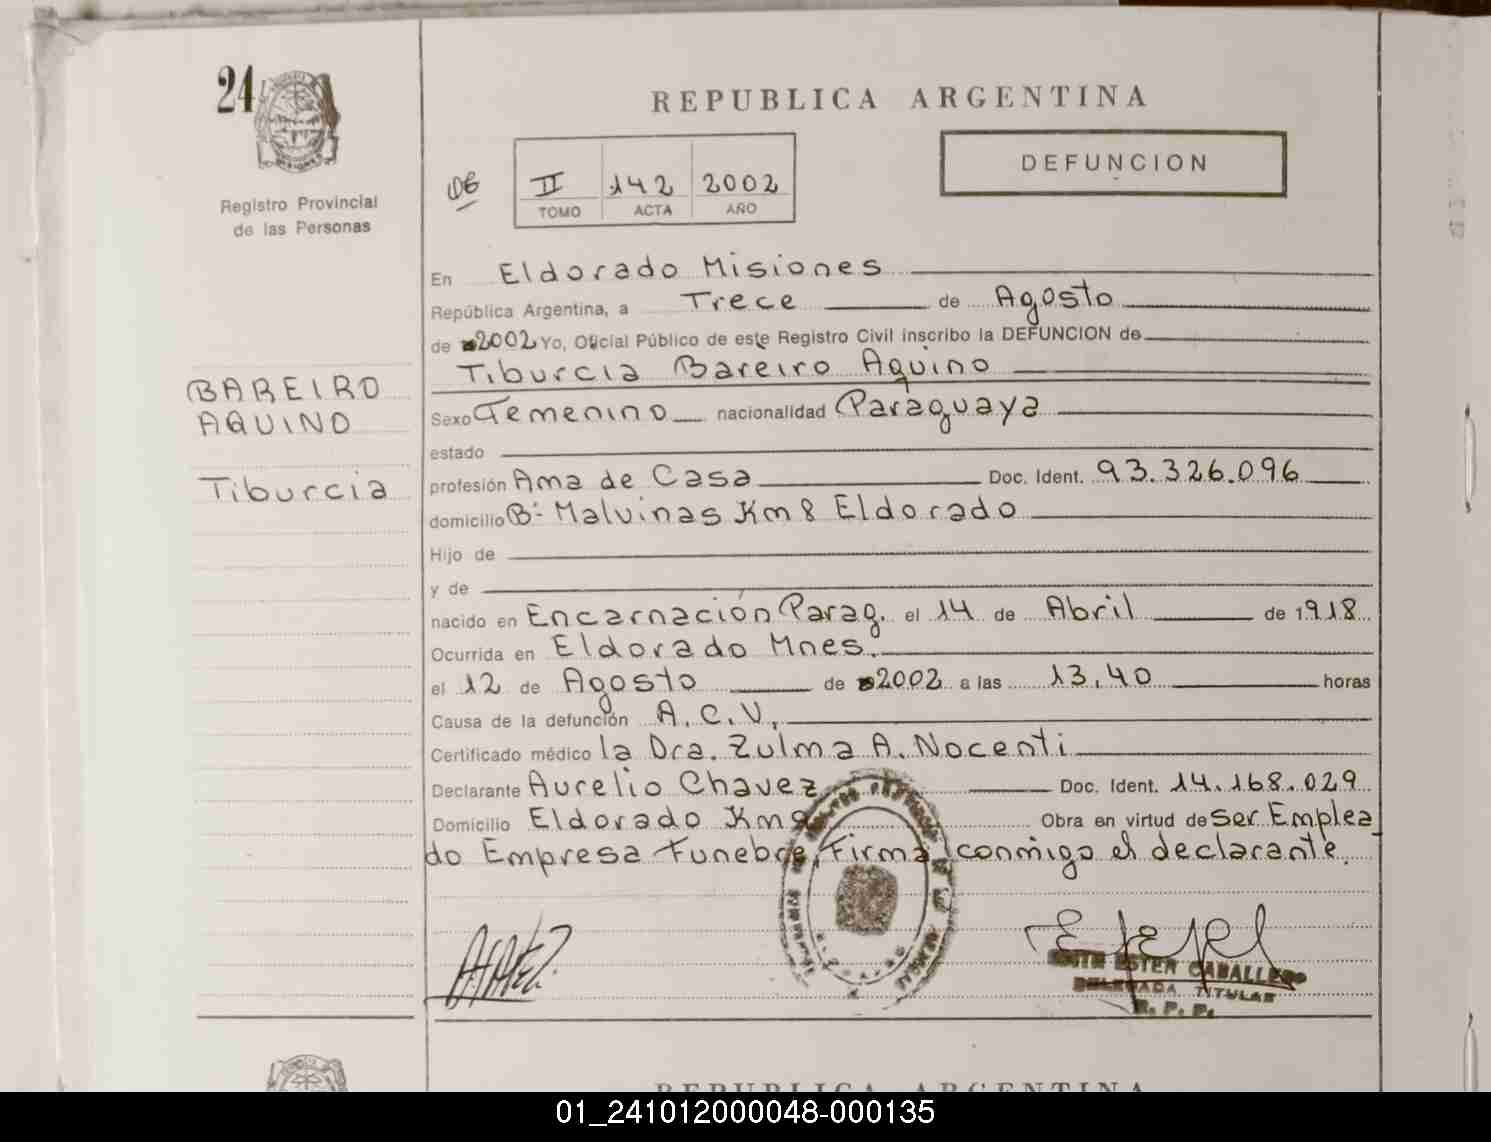 24
Registro Provincial
de las Personas
REPUBLICA ARGENTINA
DEFUNCION
II 142 2002
TOMO ACTA AÑO
BAREIRO
AQUINO
Tiburcia
En Eldorado Misiones
República Argentina, a Trece de Agosto
de 2002 Yo, Oficial Público de este Registro Civil inscribo la DEFUNCION de
Tiburcia Bareiro Aquino
Sexo Femenino nacionalidad Paraguaya
estado
profesión Ama de Casa Doc. Ident. 93.326.096
domicilio Bº Malvinas Km 8 Eldorado
Hijo de
y de
nacido en Encarnación Parag. el 14 de Abril de 1918
Ocurrida en Eldorado Mnes.
el 12 de Agosto de 2002 a las 13,40 horas
Causa de la defunción A.C.V.
Certificado médico la Dra. Zulma A. Nocenti
Declarante Aurelio Chavez Doc. Ident. 14.168.029
Domicilio Eldorado Km 9 Obra en virtud de Ser Emplea
do Empresa Funebre, Firma conmigo el declarante.
ESTER CABALLERO
DELEGADA TITULAR
R. P. P.
REPUBLICA ARGENTINA
01_241012000048-000135